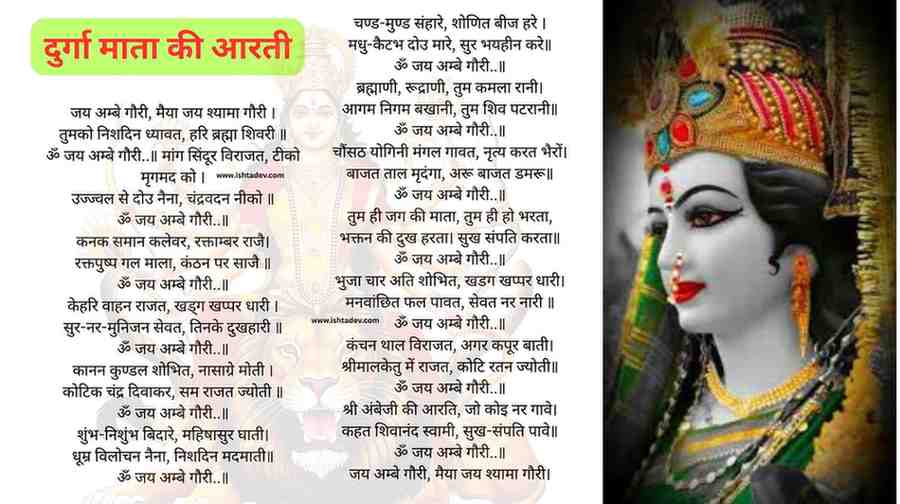 दुर्गा माता की आरती
जय अम्बे गौरी, मैया जय श्यामा गौरी ।
तुमको निशदिन ध्यावत, हरि ब्रह्मा शिवरी ॥
ॐ जय अम्बे गौरी..॥ मांग सिंदूर विराजत, टीको
मृगमद को ।
www.ishtadev.com
उज्ज्वल से दोउ नैना, चंद्रवदन नीको ॥
ॐ जय अम्बे गौरी..॥
कनक समान कलेवर, रक्ताम्बर राजै।
रक्तपुष्प गल माला, कंठन पर साजै ॥
ॐ जय अम्बे गौरी..॥
केहरि वाहन राजत, खड्ग खप्पर धारी ।
सुर-नर-मुनिजन सेवत, तिनके दुखहारी ॥
ॐ जय अम्बे गौरी..॥
कानन कुण्डल शोभित, नासाग्रे मोती ।
कोटिक चंद्र दिवाकर, सम राजत ज्योती ॥
ॐ जय अम्बे गौरी..॥
शुंभ-निशुंभ बिदारे, महिषासुर घाती।
धूम्र विलोचन नैना, निशदिन मदमाती॥
ॐ जय अम्बे गौरी..॥
चण्ड-मुण्ड संहारे, शोणित बीज हरे ।
मधु-कैटभ दोउ मारे, सुर भयहीन करे॥
ॐ जय अम्बे गौरी..॥
ब्रह्माणी, रूद्राणी, तुम कमला रानी।
आगम निगम बखानी, तुम शिव पटरानी॥
ॐ जय अम्बे गौरी..॥
चौंसठ योगिनी मंगल गावत, नृत्य करत भैरों।
बाजत ताल मृदंगा, अरू बाजत डमरू॥
ॐ जय अम्बे गौरी..॥
तुम ही जग की माता, तुम ही हो भरता,
भक्तन की दुख हरता। सुख संपति करता॥
ॐ जय अम्बे गौरी..॥
भुजा चार अति शोभित, खडग खप्पर धारी।
मनवांछित फल पावत, सेवत नर नारी ॥
www.ishtadev.com
ॐ जय अम्बे गौरी..॥
कंचन थाल विराजत, अगर कपूर बाती।
श्रीमालकेतु में राजत, कोटि रतन ज्योती॥
ॐ जय अम्बे गौरी..॥
श्री अंबेजी की आरति, जो कोइ नर गावे।
कहत शिवानंद स्वामी, सुख-संपति पावे॥
ॐ जय अम्बे गौरी..॥
जय अम्बे गौरी, मैया जय श्यामा गौरी।